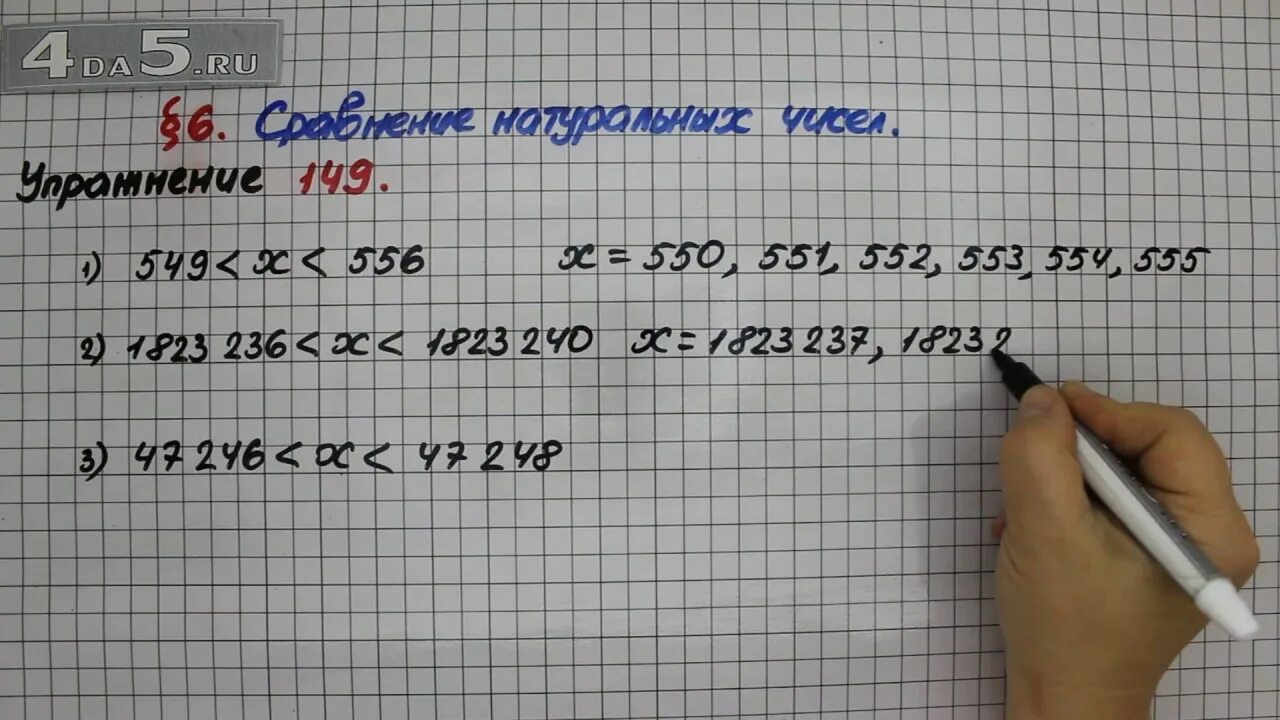 4DA5.RU
§6. Сравнение натуральных чисел.
Упражнение 149.
1) 549 < x < 556 x = 550, 551, 552, 553, 554, 555
2) 1823 236 < x < 1823 240 x = 1823 237, 1823 2
3) 47 246 < x < 47 248